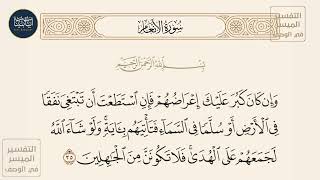 سورة الأنعام
بسم الله الرحمن الرحيم
وَإِن كَانَ كَبُرَ عَلَيْكَ إِعْرَاضُهُمْ فَإِنِ ٱسْتَطَعْتَ أَن تَبْتَغِىَ نَفَقًا
فِى ٱلْأَرْضِ أَوْ سُلَّمًا فِى ٱلسَّمَآءِ فَتَأْتِيَهُم بِـَٔايَةٍ ۚ وَلَوْ شَآءَ ٱللَّهُ
لَجَمَعَهُمْ عَلَى ٱلْهُدَىٰ ۚ فَلَا تَكُونَنَّ مِنَ ٱلْجَـٰهِلِينَ ٣٥
التفسير
الميسر
في الوصف
التفسير
الميسر
في الوصف